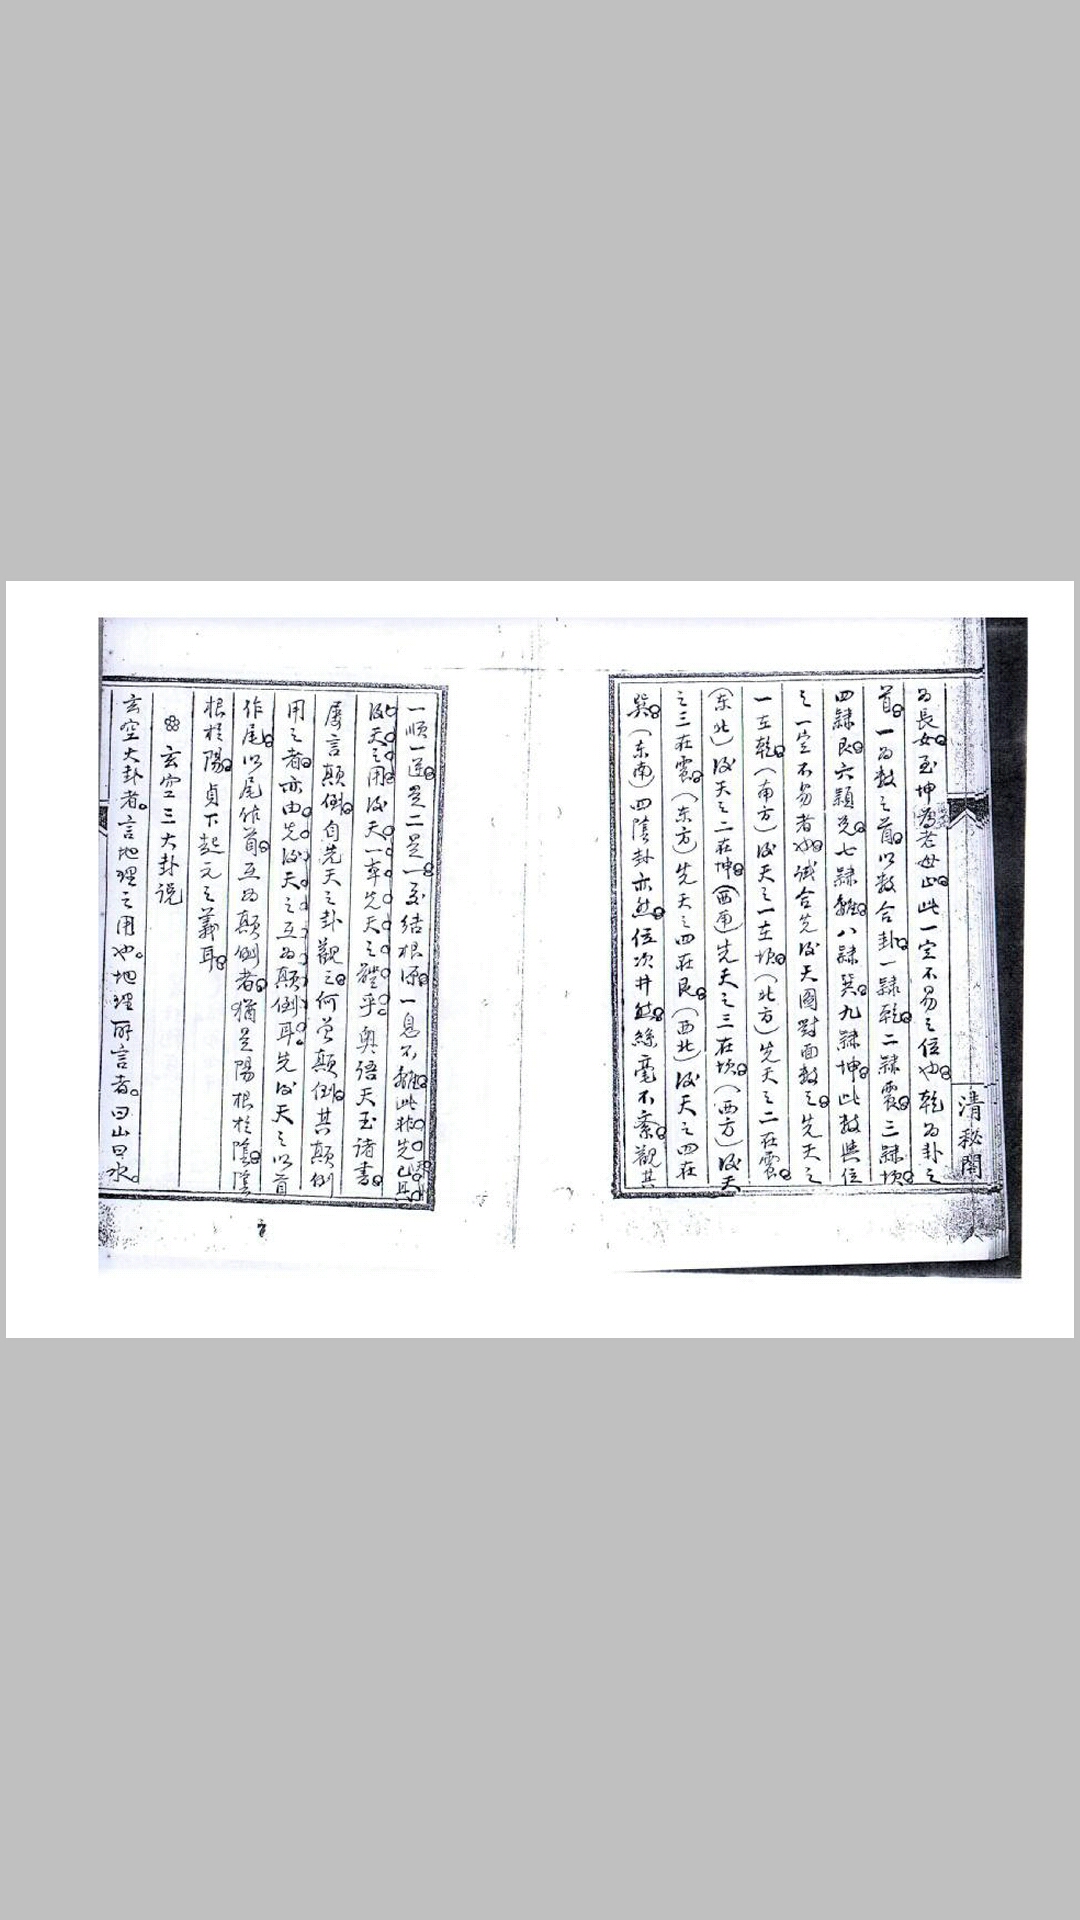 為長女至坤為老母止此一定不易之位也乾為卦之
首一為數之首以數合卦一隸乾二隸震三隸坎
四隸艮六隸兌七隸離八隸巽九隸坤此數與位
之一定不易者也試合先後天圖對面數之先天之
一在乾（南方）後天之一在坎（北方）先天之二在震
（东北）後天之二在坤（西南）先天之三在坎（西方）後天
之三在震（东方）先天之四在艮（西北）後天之四在
巽（东南）四陰卦亦然位次井然絲毫不紊觀其
清秘閣
一順一逆是二是一交結根源一息不離此非先
後天之用後天一率先天之體乎。奧語天玉諸書
屢言顛倒自先天之卦觀之何嘗顛倒其顛倒
用之者亦由先後天之互為顛倒耳。先後天之以首
作尾以尾作首互為顛倒者猶是陽根於陰陰
根於陽貞下起元之義耳
玄空三大卦說
玄空大卦者。言地理之用也。地理所言者。曰山曰水。